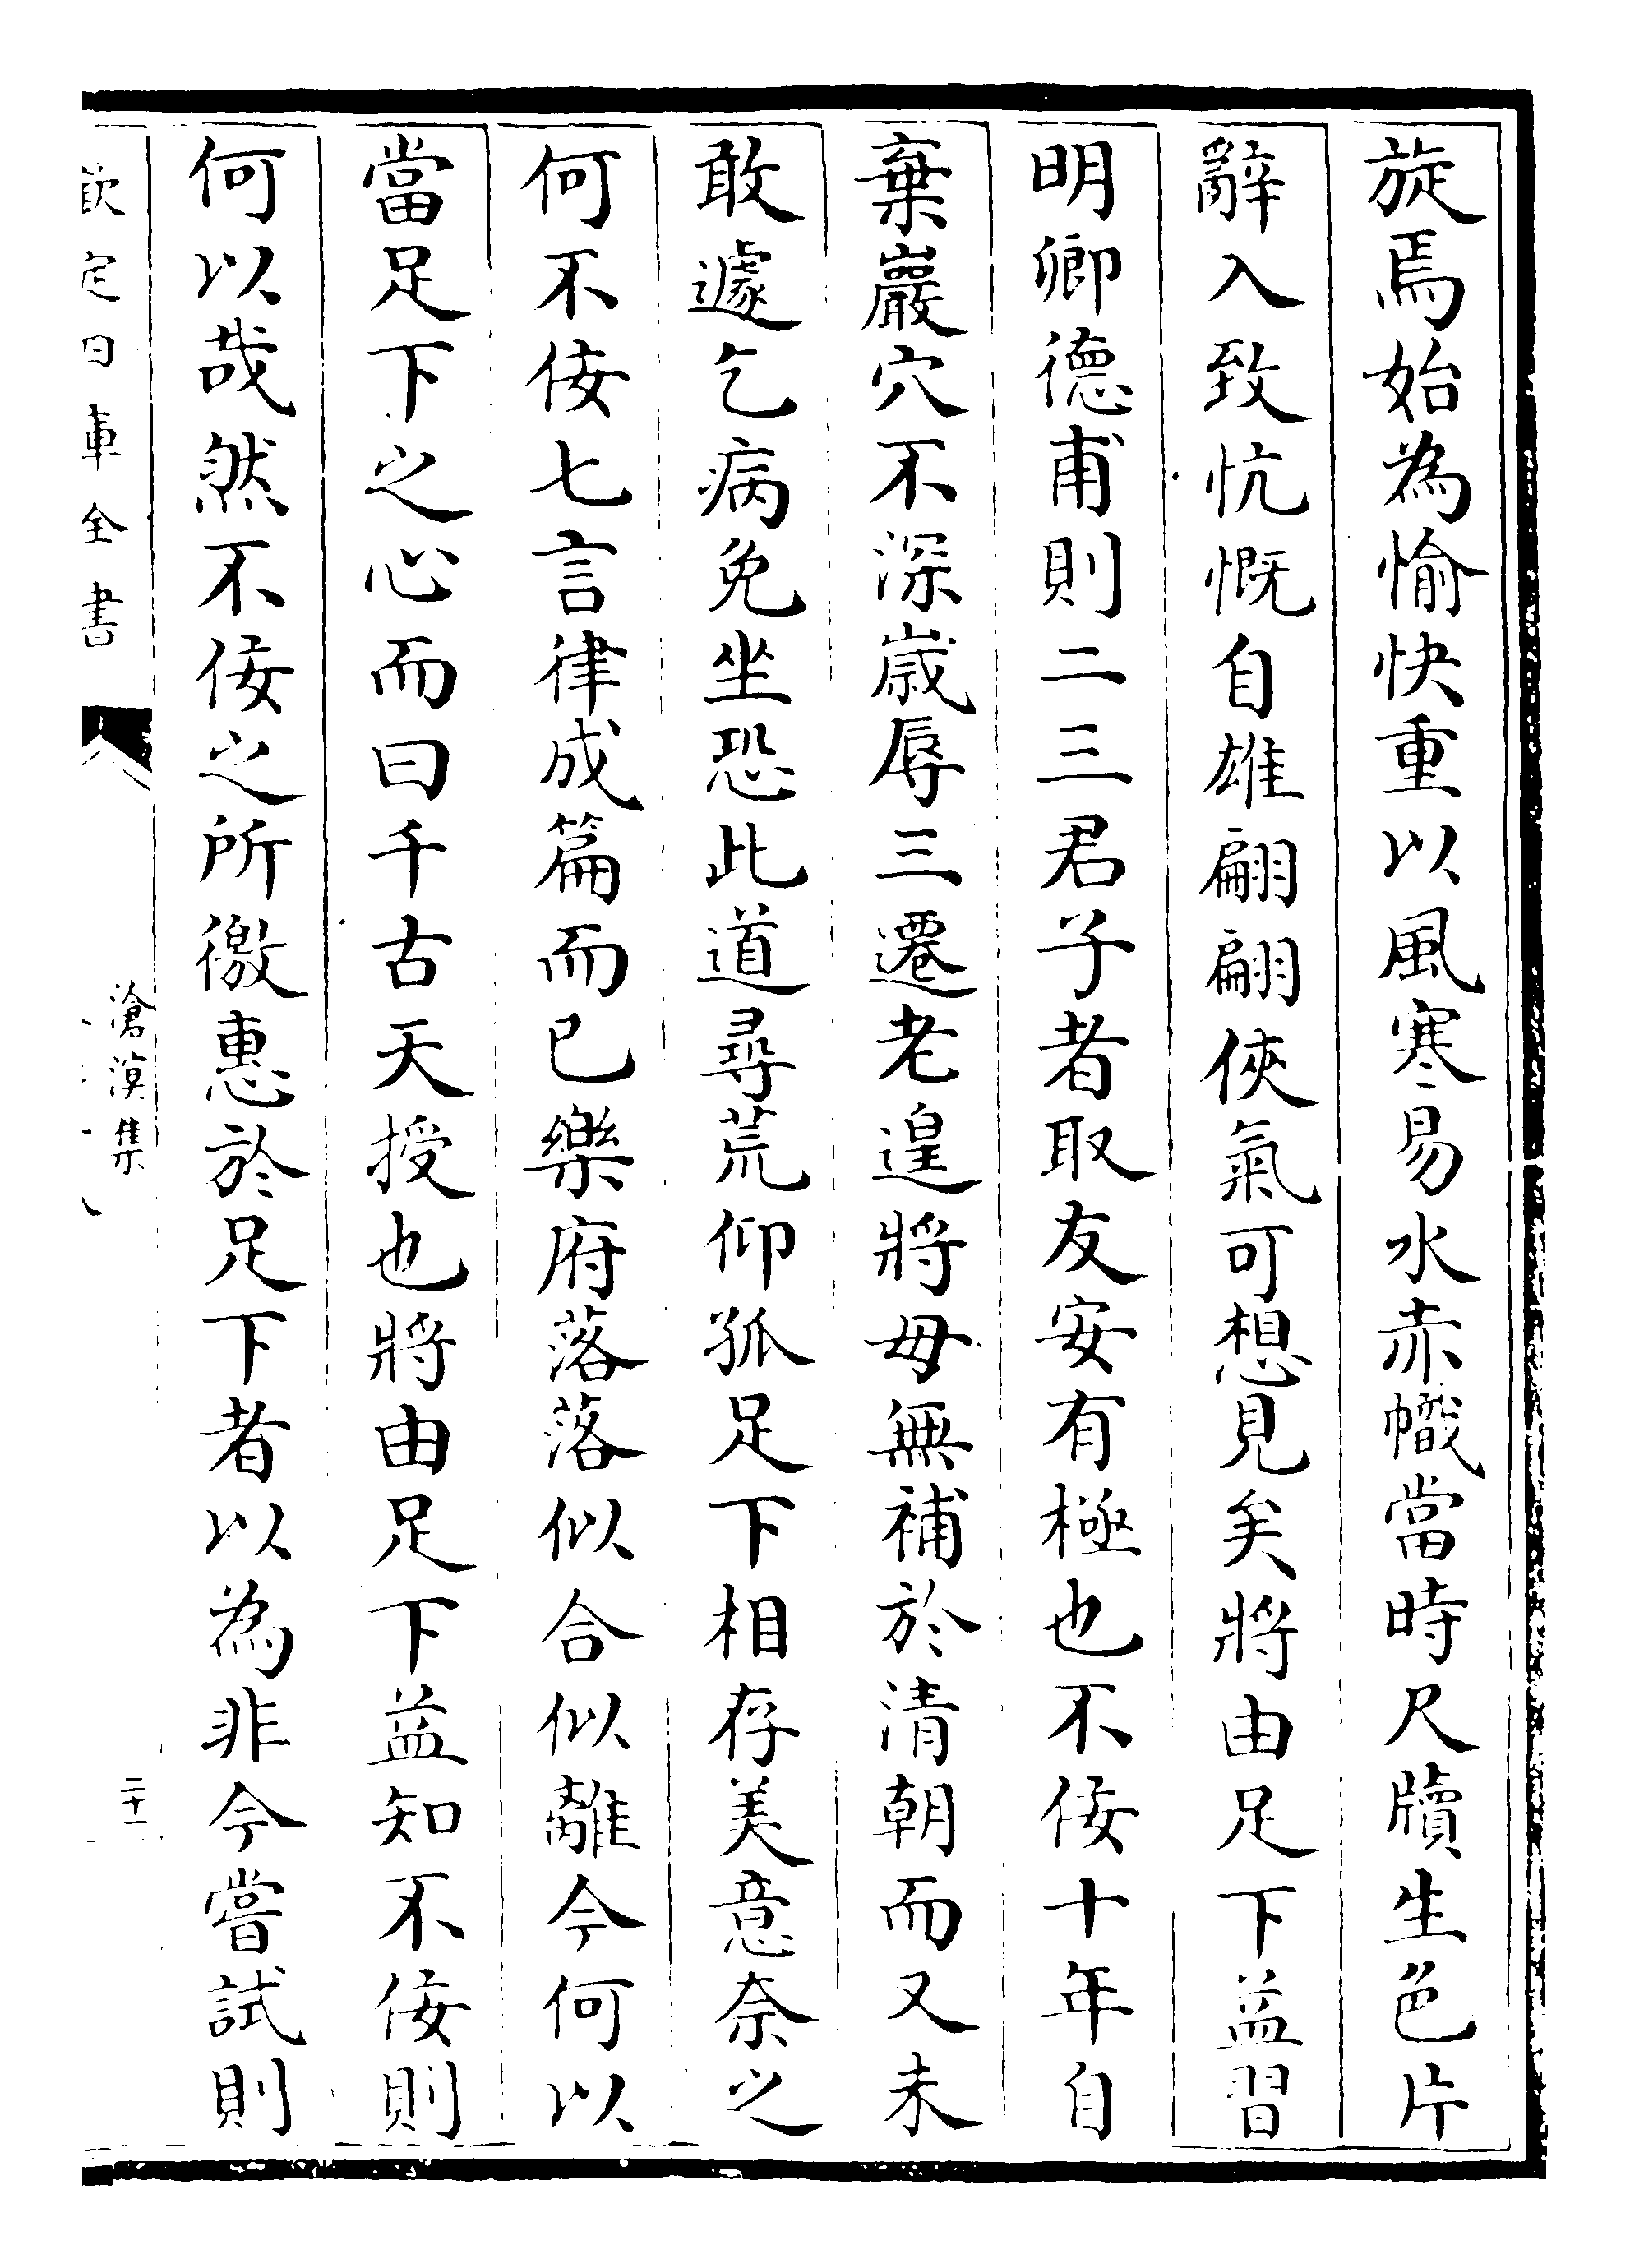 旋焉始為愉快重以風寒易水赤幟當時尺牘生色片
辭入致忼慨自雄翩翩俠氣可想見矣將由足下益習
明卿德甫則二三君子者取友安有極也不佞十年自
棄巖穴不深嵗辱三遷老遑將母無補於清朝而又未
敢遽乞病免坐恐此道尋荒仰孤足下相存美意奈之
何不佞七言律成篇而已樂府落落似合似離今何以
當足下之心而曰千古天授也將由足下益知不佞則
何以哉然不佞之所徼惠於足下者以為非今嘗試則
欽定四庫全書
滄溟集
二十一